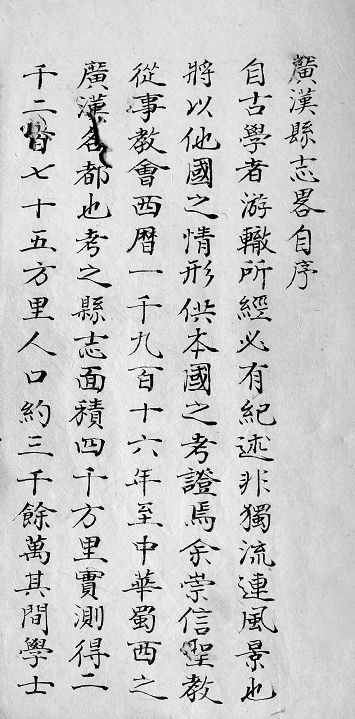 廣漢縣志畧自序
自古學者游轍所經必有紀述非獨流連風景也
將以他國之情形供本國之考證焉余崇信聖教
從事教會西曆一千九百十六年至中華蜀西之
廣漢名都也考之縣志面積四千方里實測得二
千二百七十五方里人口約三千餘萬其間學士